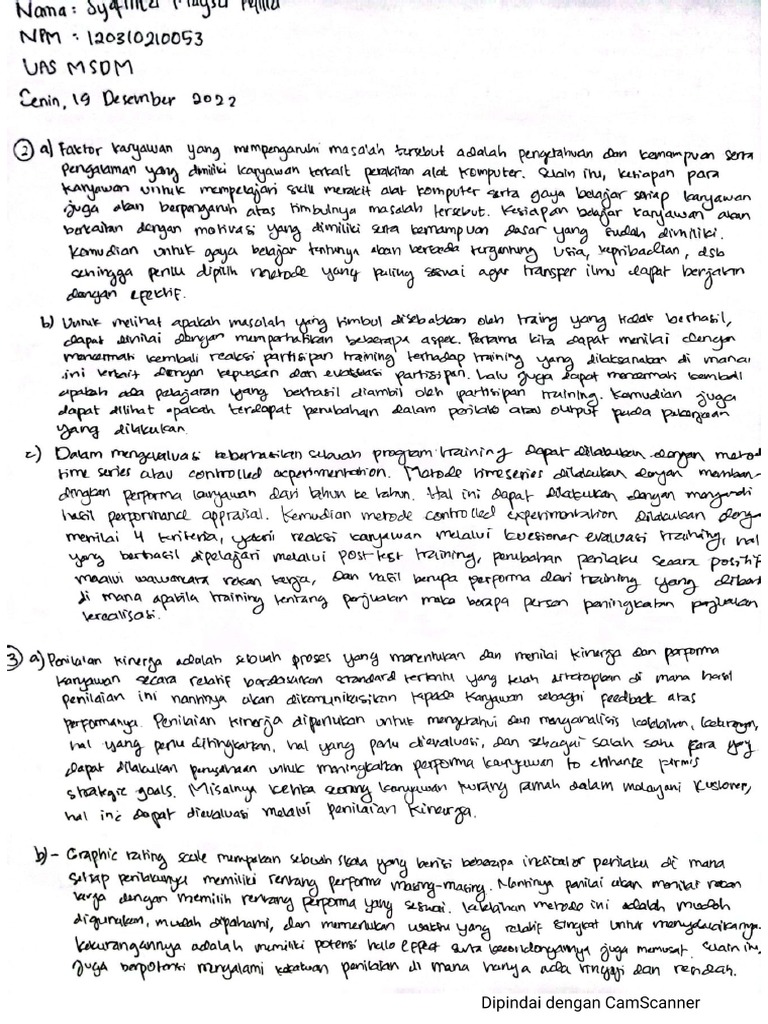 Nama: Syafinta Maysa
NPM : 120310210053
UAS MSDM
Cenin, 19 Desember 2022
② a) Faktor karyawan yang mempengaruhi masalah tersebut adalah pengetahuan dan kemampuan serta
pengalaman yang dimiliki karyawan terkait perakitan alat komputer. Selain itu, kesiapan para
karyawan untuk mempelajari skill merakit alat komputer serta gaya belajar setiap karyawan
juga akan berpengaruh atas timbulnya masalah tersebut. Kesiapan belajar karyawan akan
berkaitan dengan motivasi yang dimiliki serta kemampuan dasar yang sudah dimiliki.
Kemudian untuk gaya belajar tentunya akan berbeda tergantung usia, kepribadian, dsb
sehingga perlu dipilih metode yang paling sesuai agar transfer ilmu dapat berjalan
dengan efektif.
b) Untuk melihat apakah masalah yang timbul disebabkan oleh traing yang tidak berhasil,
dapat dinilai dengan memperhatikan beberapa aspek. Pertama kita dapat menilai dengan
mencermati kembali reaksi partisipan training terhadap training yang dilaksanakan di mana
ini terkait dengan kepuasan dan evaluasi partisipan. Lalu juga dapat mencermati kembali
apakah ada pelajaran yang berhasil diambil oleh partisipan training. Kemudian juga
dapat dilihat apakah terdapat perubahan dalam perilaku atau output pada pekerjaan
yang dilakukan.
c) Dalam mengevaluasi keberhasilan sebuah program training dapat dilakukan dengan metode
time series atau controlled experimentation. Metode time series dilakukan dengan memban-
dingkan performa karyawan dari tahun ke tahun. Hal ini dapat dilakukan dengan
hasil performance appraisal. Kemudian metode controlled experimentation dilakukan dengan
menilai 4 kriteria, yakni reaksi karyawan melalui kuesioner evaluasi training, hal
yang berhasil dipelajari melalui post-test training, perubahan perilaku secara positif
melalui wawancara rekan kerja, dan hasil berupa performa dari training yang
di mana apabila training tentang penjualan maka berapa persen peningkatan penjualan
terealisasi.
③ a) Penilaian kinerja adalah sebuah proses yang menentukan dan menilai kinerja dan performa
karyawan secara relatif berdasarkan standard tertentu yang telah ditetapkan di mana hasil
penilaian ini nantinya akan dikomunikasikan kepada karyawan sebagai feedback atas
performanya. Penilaian kinerja diperlukan untuk mengetahui dan menganalisis kelebihan,
hal yang perlu ditingkatkan, hal yang perlu dievaluasi, dan sebagai salah satu cara yang
dapat dilakukan perusahaan untuk meningkatkan performa karyawan to enhance firm's
strategic goals. Misalnya ketika seorang karyawan kurang ramah dalam melayani kustomer,
hal ini dapat dievaluasi melalui penilaian kinerja.
b) - Graphic rating scale merupakan sebuah skala yang berisi beberapa indikator perilaku di mana
setiap perilakunya memiliki rentang performa masing-masing. Nantinya penilai akan menilai rekan
kerja dengan memilih rentang performa yang sesuai. Kelebihan metode ini adalah mudah
digunakan, mudah dipahami, dan memerlukan waktu yang relatif singkat untuk
kekurangannya adalah memiliki potensi halo effect serta kecondongannya juga memusat. Selain itu,
juga berpotensi mengalami penilaian di mana hanya ada tinggi dan rendah.
Dipindai dengan CamScanner